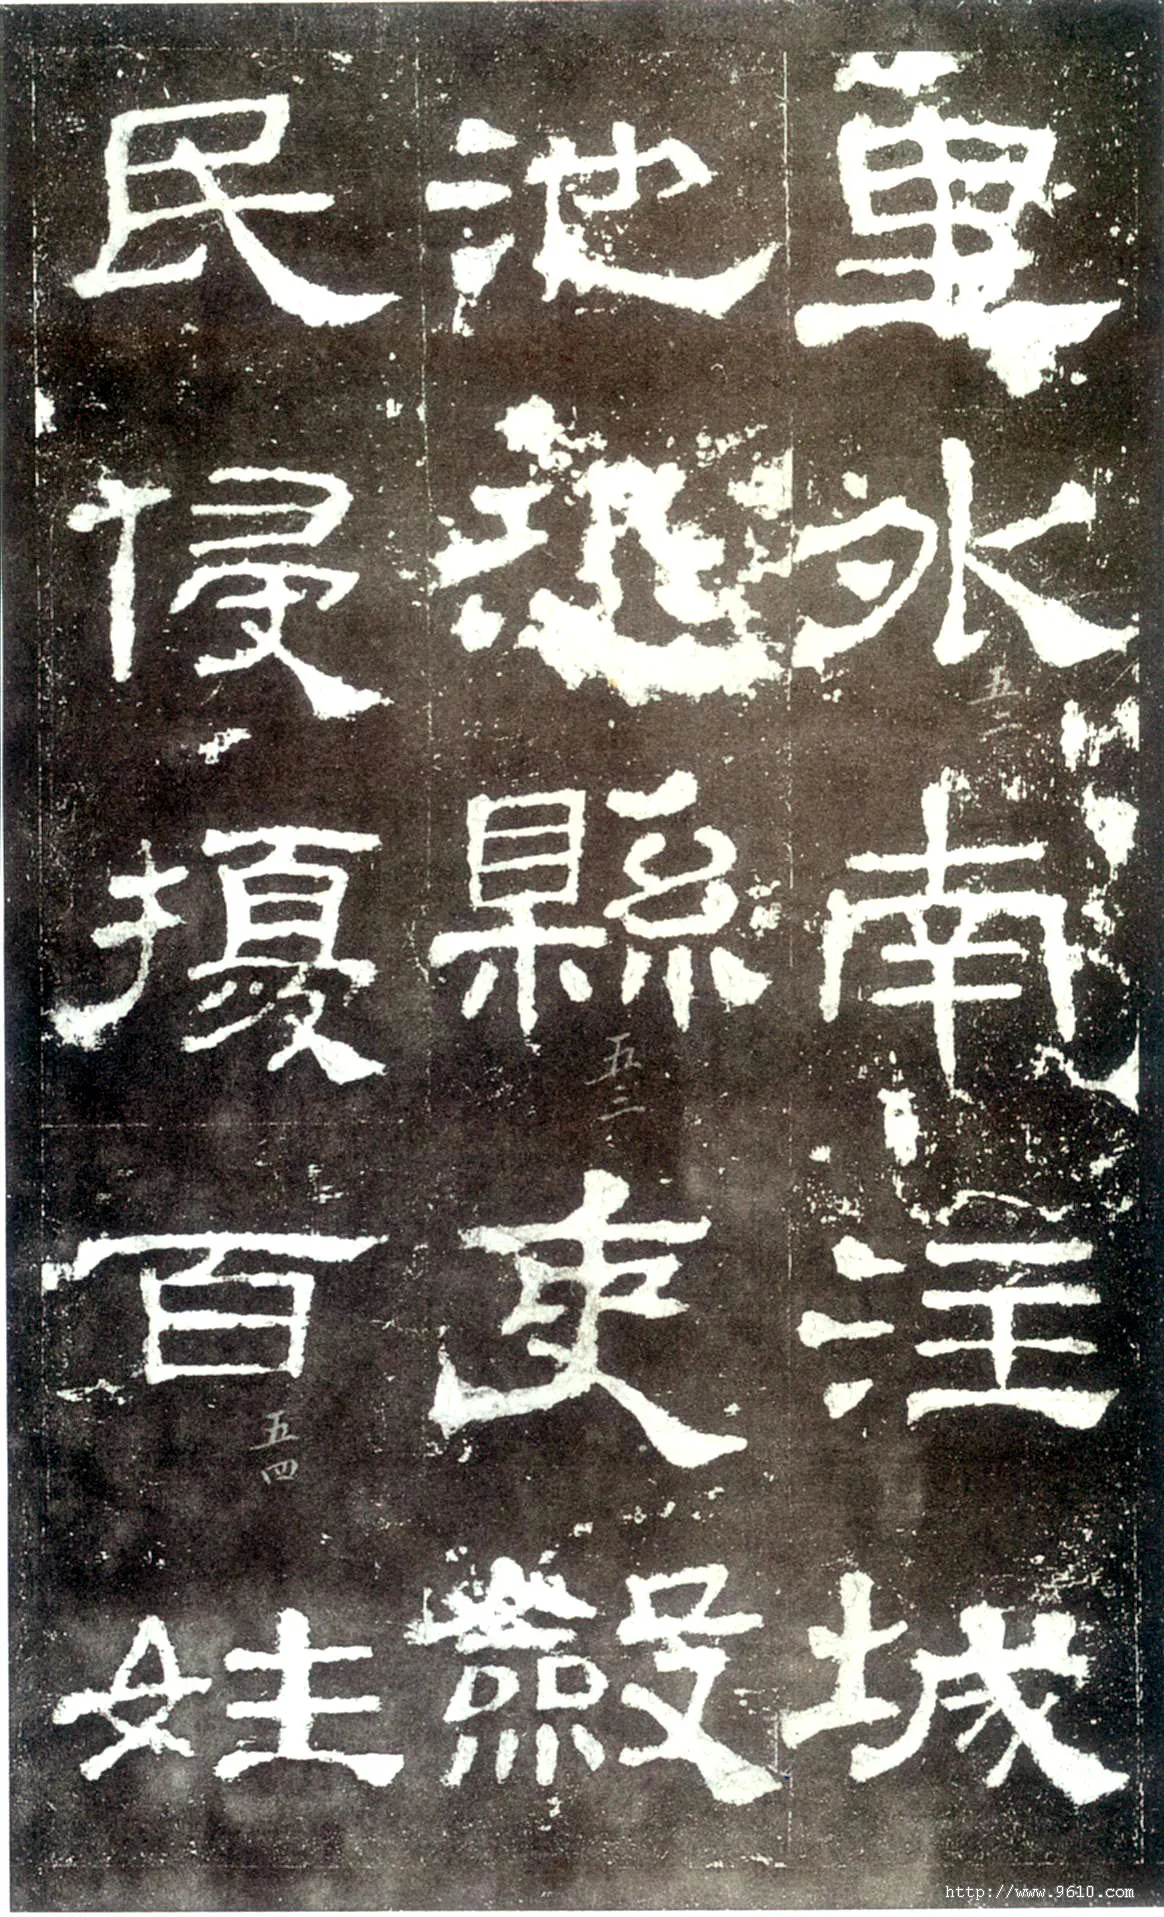 里外南注城
池恐縣吏斂
民侵擾百姓
五二
五三
五四
http://www.9610.com